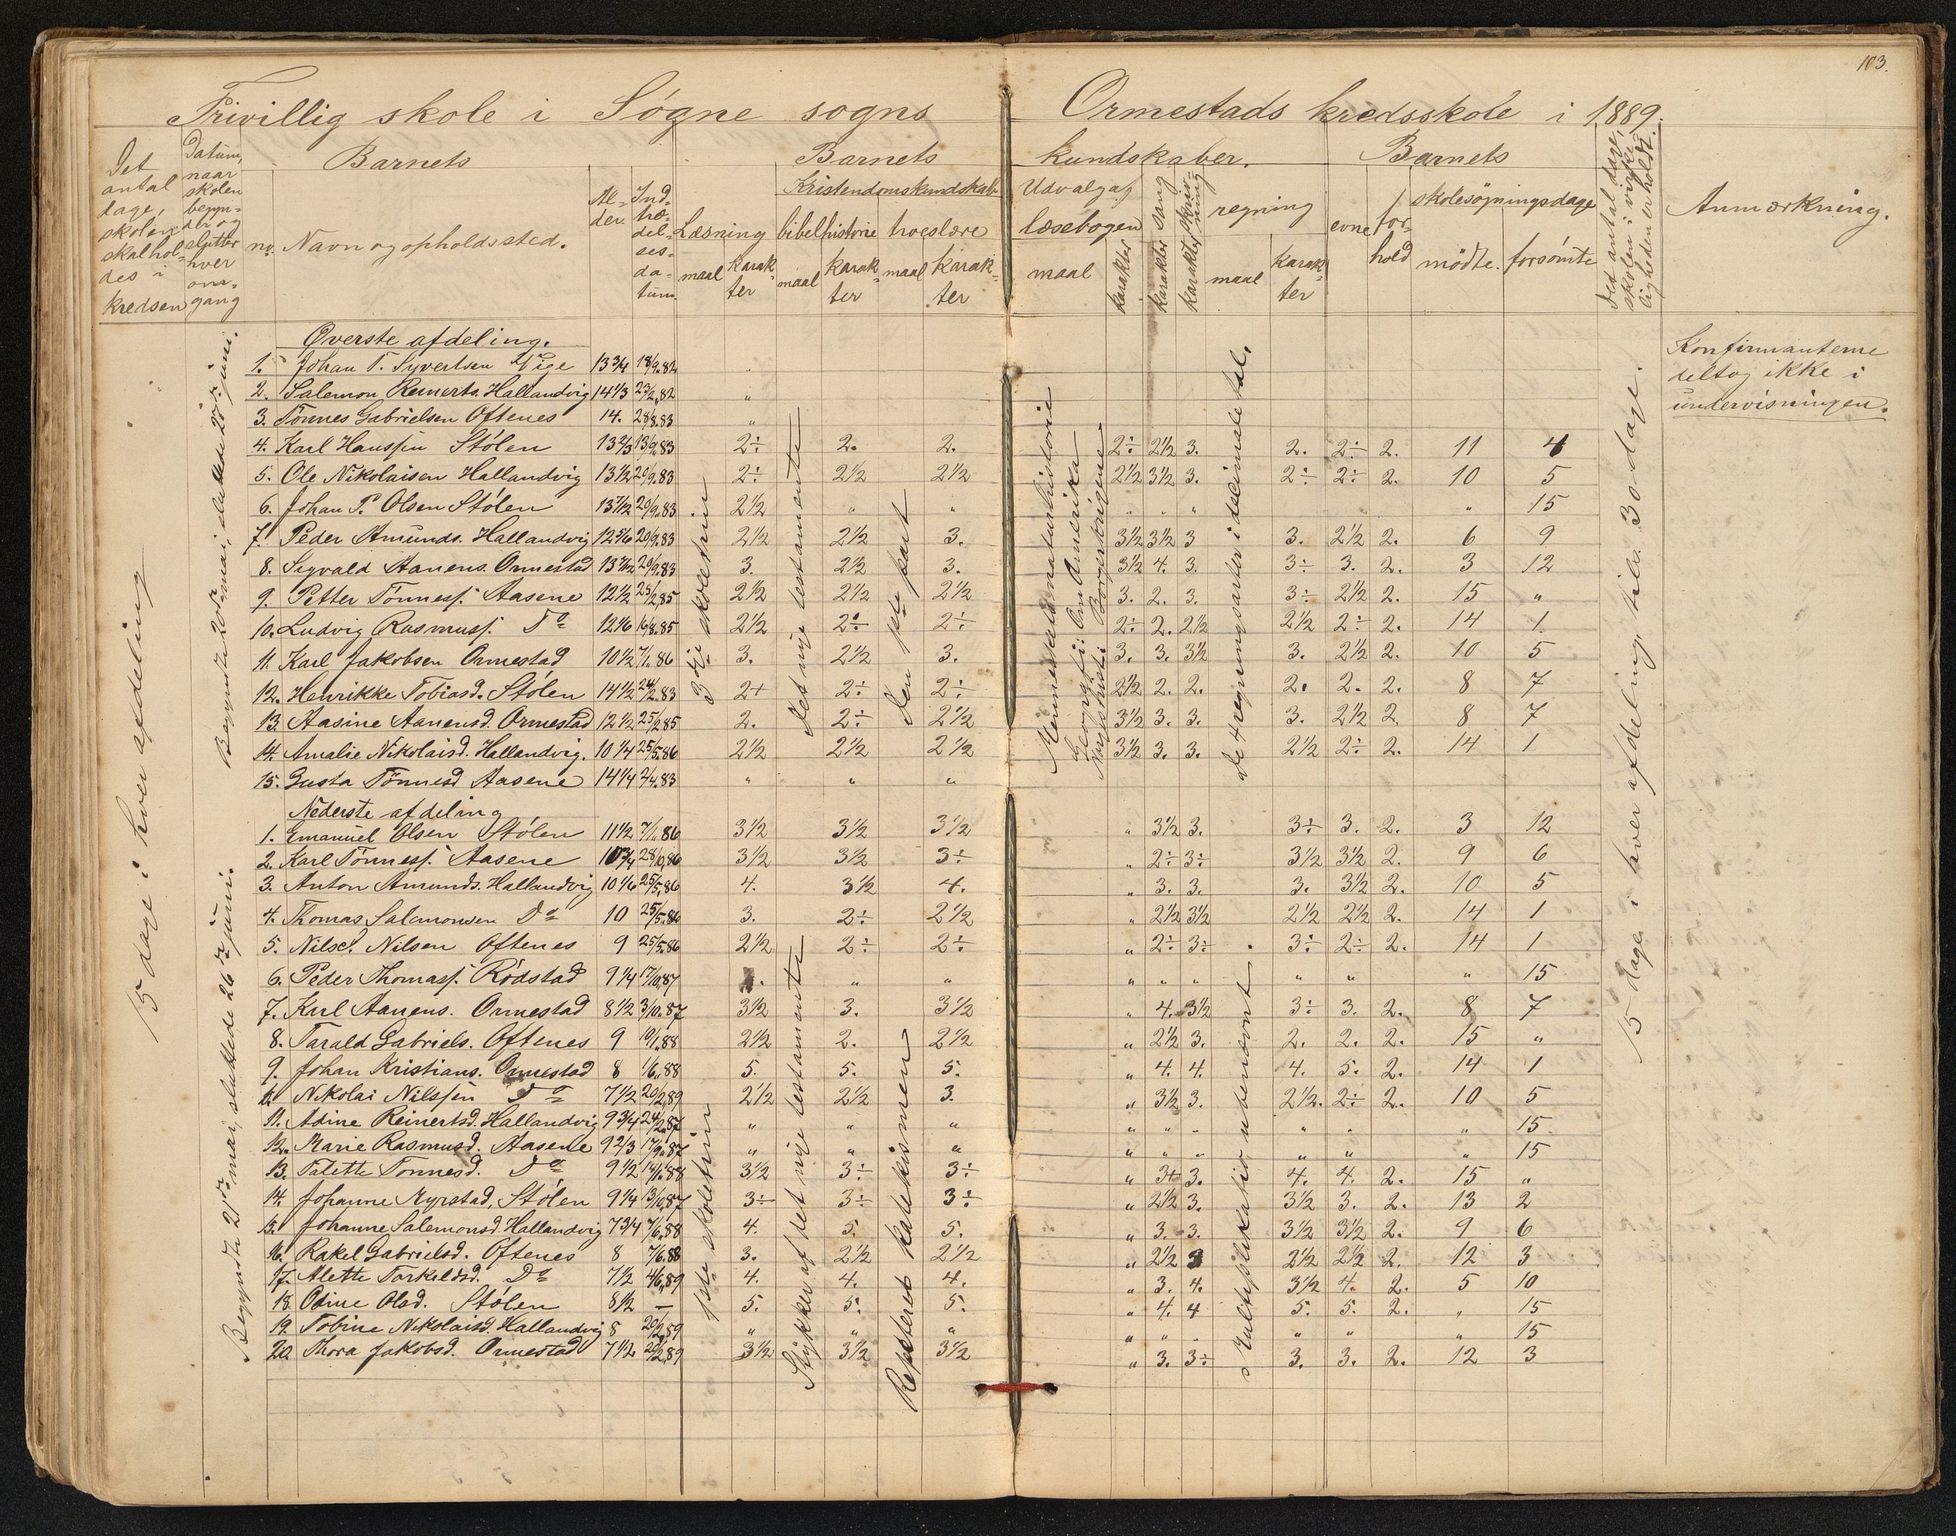 103.
Frivillig skole i Søgne sogns Ormestads kredsskole i 1889.
Det antal dage, skolen skal holdes i kredsen
Datum, naar skolen begynder og slutter hver omgang
Barnets
no. Navn og opholdssted.
Alder.
Indtrædelsesdatum.
Barnets kundskaber.
Læsning
maal karakter
Kristendomskundskab
bibelhistorie
maal karakter
troeslære
maal karakter
Udvalg af læsebogen
maal karakter
Sang
karakter
Skrivning
karakter
regning
maal karakter
Barnets
evne forhold
skolesøgningsdage
mødte. forsømte
Det antal dage, skolen i virkeligheden er holdt.
Anmærkning.
15 dage i hver afdeling
Begyndte 20de mai, sluttede 27de juni.
Øverste afdeling.
1. Johan T. Syvertsen Vige 13 3/4 18/9.82
2. Salemon Reinerts. Hallandvig 14 1/3 23/2.82 "
3. Tønnes Gabrielsen Oftenes 14. 28/8.83 "
4. Karl Hanssen Stølen 13 2/3 13/9.83 2÷ 2. 2. 2÷ 2½ 3. 2. 2÷ 2. 11 4
5. Ole Nikolaisen Hallandvig 13½ 20/9.83 2÷ 2½ 2½ 2½ 3½ 3. 2÷ 2÷ 2. 10 5
6. Johan P. Olsen Stølen 13 7/12 20/9.83 2½ " " " " " " 15
7. Peder Amunds. Hallandvig 12 5/6 20/9.83 2½ 2½ 3. 3½ 3½ 3 3. 2½ 2. 6 9
8. Sigvald Aanens. Ormestad 13 7/12 20/9.83 3. 2½ 3. 3½ 4. 3. 3÷ 3. 2. 3 12
9. Petter Tønness. Aasene 12½ 25/2.85 2½ 2½ 2½ 3. 2. 3. 3÷ 2½ 2. 15 "
10. Ludvig Rasmuss. Do 12 1/6 16/8.85 2½ 2÷ 2÷ 2÷ 2. 2½ 2½ 2÷ 2. 14 1
11. Karl Jakobsen Ormestad 10½ 7/1.86 3. 2½ 3. 3. 3. 3½ 3. 2½ 2. 10 5
12. Henrikke Tobiasd. Stølen 14½ 24/2.83 2+ 2÷ 2÷ 2½ 2. 2. 2. 2. 2. 8 7
13. Aasine Aanensd. Ormestad 12½ 25/2.85 2. 2÷ 2½ 3½ 3. 3. 3. 2½ 2. 8 7
14. Amalie Nikolaisd. Hallandvig. 10¼ 25/5.86 2½ 2½ 2½ 3½ 3. 3. 2½ 2÷ 2. 14 1
15. Gusta Tønnesd Aasene 14¼ 2/4.83 " " "
3die skoletrin
Det nye testamente
Den 1ste part
Mennesket. Naturhistorie
Geografi: Om Amerika
Borgerkrigene
De 4 regningsarter i decimale tal.
Konfirmanterne deltog ikke i undervisningen.
Begyndte 21de mai, sluttede 26de juni.
Nederste afdeling
1. Emanuel Olsen Stølen 11½ 7/1.86 3½ 3½ 3½ " 3½ 3. 3÷ 3. 2. 3 12
2. Karl Tønness. Aasene 10¾ 28/10.86 3½ 3½ 3÷ " 2÷ 3÷ 3½ 3½ 2. 9 6
3. Anton Amunds. Hallandvig 10 1/6 25/5.86 4. 3½ 4. " 3. 3. 3. 3½ 2. 10 5
4. Thomas Salemonsen Do 10 25/5.86 3. 2÷ 2½ " 2½ 3½ 2½ 2½ 2. 14 1
5. Nils P. Nilsen Oftenes 9 25/5.86 2½ 2÷ 2÷ " 2÷ 3÷ 3÷ 2÷ 2. 14 1
6. Peder Thomass. Rødstad 9¼ 17/10.87 " " " " " " " " 15
7. Karl Aanens. Ormestad 8½ 3/10.87 3½ 3. 3½ " 4. 3½ 3÷ 3. 2. 8 7
8. Tarald Gabriels. Oftenes 9 10/1.88 2½ 2. 2½ " 2½ 3. 2. 2. 2. 15 "
9. Johan Kristians. Ormestad 8 1/6.88 5. 5. 5. " 4. 4. 4. 5. 2. 14 1
10. Nikolai Nilssen Do 7½ 20/2.89 2½ 2½ 3. " 3½ 3. 2½. 2÷ 2. 10 5
11. Adine Reinertsd. Hallandvig 9¾ 24/2.87 " " " " " " " " " 15
12. Marie Rasmusd. Aasene 9 2/3 17/9.87 " " " " " " " " " 15
13. Talette Tønnesd. Do 9½ 14/1.88 3½ 3÷ 3÷ " 3+ 3. 4. 4. 2. 15 "
14. Johanne Myrstad, Stølen 9¼ 13/10.87 3÷ 3÷ 3÷ " 2½ 3. 3½ 3. 2. 13 2
15. Johanne Salemonsd. Hallandvig 7¾ 7/6.88 4. 5. 5. " 3. 3. 3½ 3½ 2. 9 6
16. Rakel Gabrielsd. Oftenes 8 7/6.88 3. 2½ 2½ " 2½ 3 2½ 2½ 2. 12 3
17. Alette Torkeldsd. Do 7½ 4/6.89 4. 4. 4. " 3. 4. 3½ 4. 2. 5 10
18. Odine Olsd. Stølen 8½ — 5. 5. 5. " 4. 4 5. 5. 2. " 15
19. Tobine Nikolaisd. Hallandvig 8 20/2.89 " " " " " " " " " 15
20. Thora Jakobsd. Ormestad 7½ 20/2.89 3½ 3½ 3½ " 3. 3÷ 3. 3. 2. 12 3
1ste skoletrin
Stykker af det nye testamente
Repeteret katekismen
Multiplikation, ubenævnt.
15 dage i hver afdeling, tils. 30 dage.